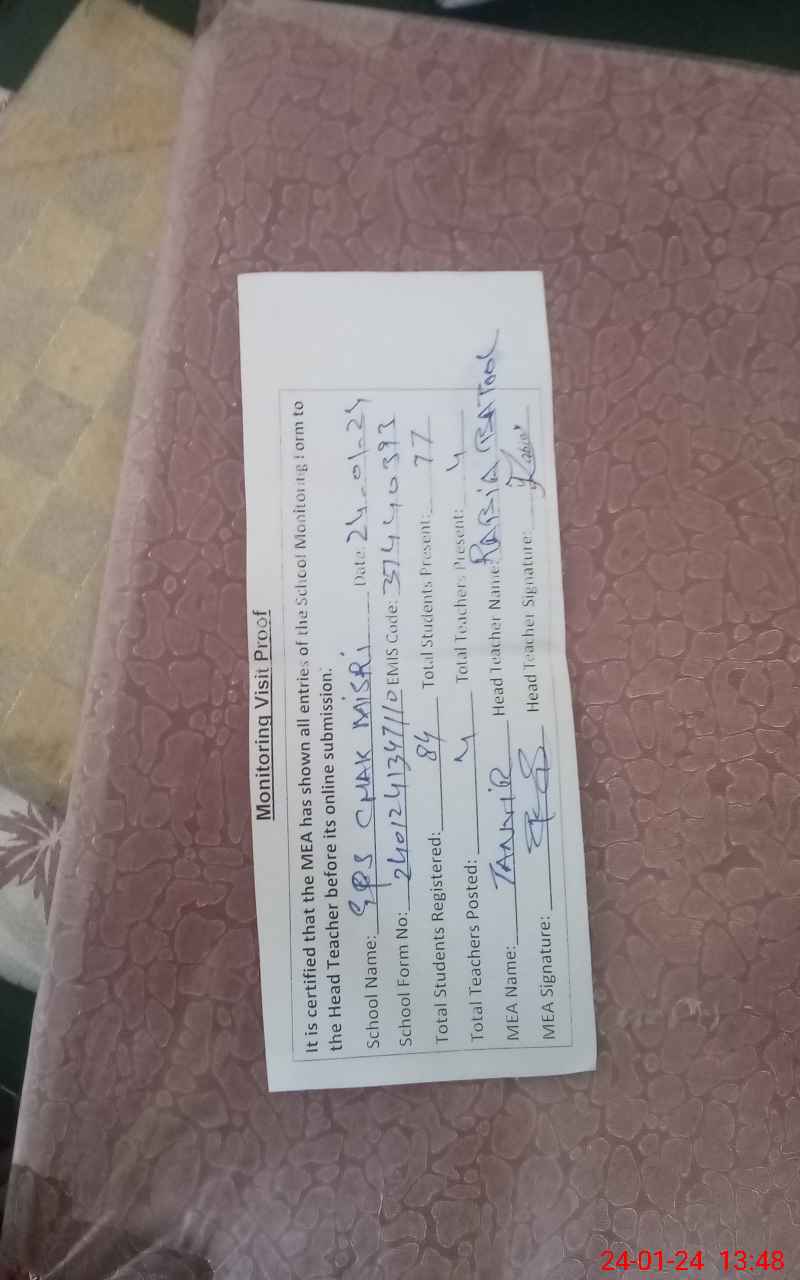 Monitoring Visit Proof
It is certified that the MEA has shown all entries of the School Monitoring Form to
the Head Teacher before its online submission.
School Name: GPS CHAK MISRI Date: 24-01-24
School Form No: 2401241347110 EMIS Code: 37440393
Total Students Registered: 84 Total Students Present: 77
Total Teachers Posted: 4 Total Teachers Present: 4
MEA Name: TANVIR Head Teacher Name: RABIA BATOOL
MEA Signature: Head Teacher Signature: Rabia
24-01-24 13:48